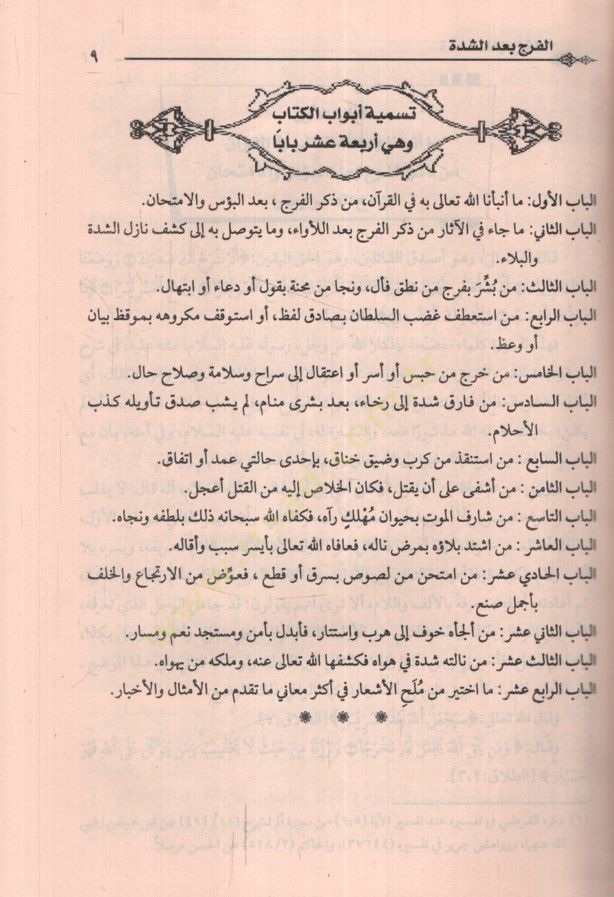 الفرج بعد الشدة
٩
تسمية أبواب الكتاب
وهي أربعة عشر باباً
الباب الأول: ما أنبأنا الله تعالى به في القرآن، من ذكر الفرج ، بعد البؤس والامتحان.
الباب الثاني: ما جاء في الآثار من ذكر الفرج بعد اللأواء، وما يتوصل به إلى كشف نازل الشدة
والبلاء.
الباب الثالث: من بُشِّرَ بفرج من نطق فأل، ونجا من محنة بقول أو دعاء أو ابتهال.
الباب الرابع: من استعطف غضب السلطان بصادق لفظ، أو استوقف مكروهه بموقظ بيان
أو وعظ.
الباب الخامس: من خرج من حبس أو أسر أو اعتقال إلى سراح وسلامة وصلاح حال.
الباب السادس: من فارق شدة إلى رخاء، بعد بشرى منام، لم يشب صدق تأويله كذب
الأحلام.
الباب السابع : من استنقذ من كرب وضيق خناق، بإحدى حالتي عمد أو اتفاق.
الباب الثامن: من أشفى على أن يقتل، فكان الخلاص إليه من القتل أعجل.
الباب التاسع : من شارف الموت بحيوان مُهْلكٍ رآه، فكفاه الله سبحانه ذلك بلطفه ونجاه.
الباب العاشر : من اشتد بلاؤه بمرض ناله، فعافاه الله تعالى بأيسر سبب وأقاله.
الباب الحادي عشر: من امتحن من لصوص بسرق أو قطع ، فعوِّض من الارتجاع والخلف
بأجمل صنع.
الباب الثاني عشر: من ألجأه خوف إلى هرب واستتار، فأبدل بأمن ومستجد نعم ومسار.
الباب الثالث عشر: من نالته شدة في هواه فكشفها الله تعالى عنه، وملكه من يهواه.
الباب الرابع عشر: ما اختير من مُلَحِ الأشعار في أكثر معاني ما تقدم من الأمثال والأخبار.